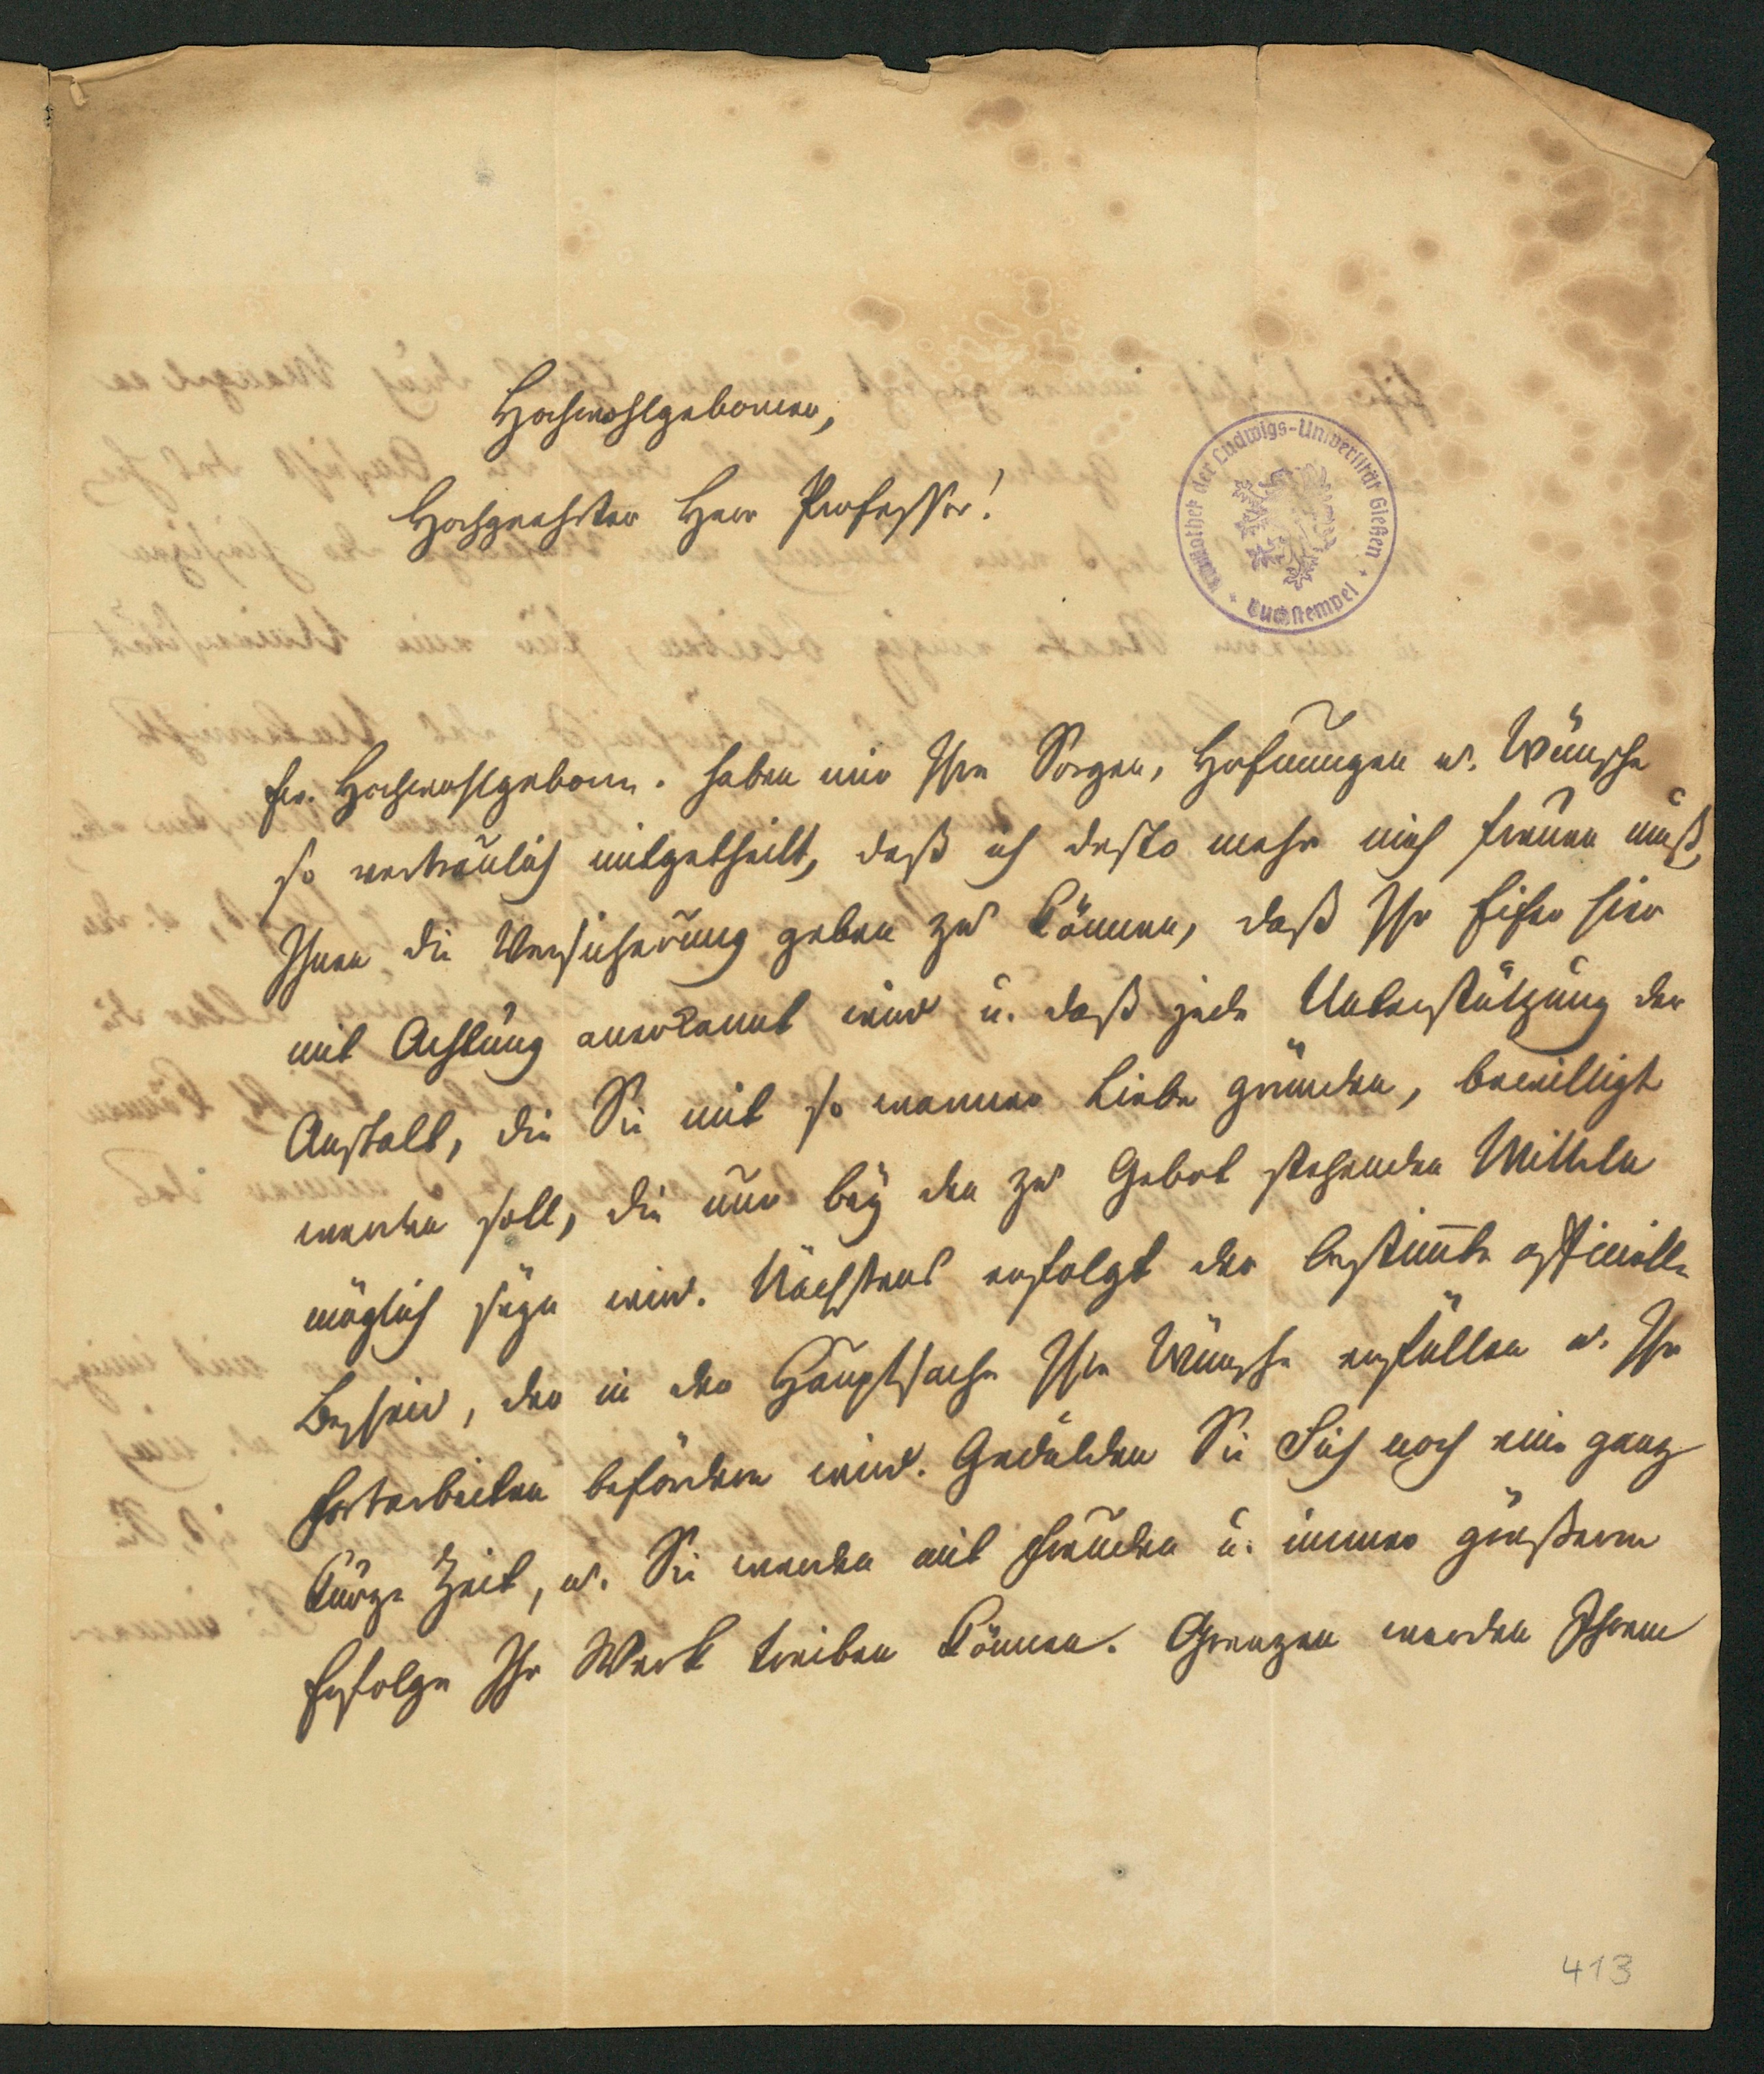 Hochwohlgeborner,
Hochgeehrter Herr Professor!
Bibliothek der Ludwigs-Universität Gießen
Buchstempel
Ew. Hochwohlgeborn. haben mir Ihre Sorgen, Hofnungen u. Wünsche
so vertraulich mitgetheilt, daß ich desto mehr mich freuen muß,
Ihnen die Versicherung geben zu können, daß Ihr Eifer hier
mit Achtung anerkannt wird u. daß jede Unterstützung der
Anstalt, die Sie mit so warmer Liebe gründen, bewilligt
werden soll, die nur bey den zu Gebot stehenden Mitteln
möglich seyn wird. Nächstens erfolgt der bestimte officielle
Bescheid, der in der Hauptsache Ihre Wünsche erfüllen u. Ihr
Fortarbeiten befördern wird. Gedulden Sie Sich noch eine ganz
kurze Zeit, u. Sie werden mit Freuden u. immer größerm
Erfolge Ihr Werk treiben können. Grenzen werden Ihrem
413